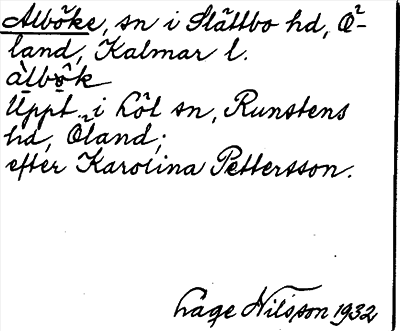 Alböke, sn i Slättbo hd, Ö-
land, Kalmar l.
àlbö̂k
Uppt. i Löt sn, Runstens
hd, Öland;
efter Karolina Pettersson.
Lage Nilsson 1932